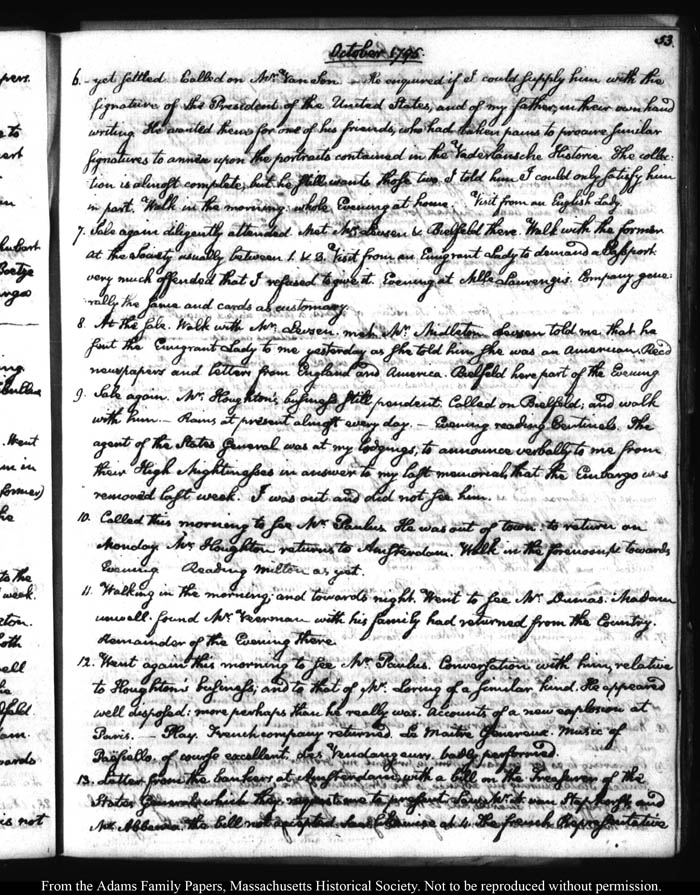 53.
October 1795.
6. yet settled. Called on Mr. Van Son. He enquired if I could supply him with the
signature of the President of the United States, and of my father, in their own hand
writing. He wanted them for one of his friends, who had taken pains to procure similar
signatures to annex upon the portraits contained in the Vaderlansche Historie. The collec-
tion is almost complete, but he still wants those two. I told him I could only satisfy him
in part. Walk in the morning: whole Evening at home. Visit from an English Lady.
7. Sale again diligently attended. Met Mr. Levsen & Bielfeld there. Walk with the former
at the Society usually between 1. & 3. Visit from an Emigrant Lady to demand a Passport.
very much offended that I refused to give it. Evening at Mlle Laurengis. Company gene-
rally the same and cards as customary.
8. At the sale. Walk with Mr. Levsen. met Mr. Midleton. Levsen told me that he
sent the Emigrant Lady to me yesterday as she told him she was an American. Recd
newspapers and letters from England and America. Bielfeld here part of the Evening
9. Sale again. Mr. Houghton's business still pendent. Called on Bielfeld; and walk
with him. — Rains at present almost every day. — Evening reading Centinels. The
agent of the States General was at my lodgings, to announce verbally to me from
their High Mightinesses in answer to my last memorial, that the Embargo was
removed last week. I was out and did not see him.
10. Called this morning to see Mr. Paulus. He was out of town: to return on
Monday. Mr. Houghton returns to Amsterdam. Walk in the forenoon & towards
Evening Reading Milton as yet.
11. Walking in the morning; and towards night. Went to see Mr. Dumas. Madam
unwell. found Mr. Veerman with his family had returned from the Country.
Remainder of the Evening there.
12. Went again this morning to see Mr. Paulus. Conversation with him, relative
to Houghton's business, and to that of Mr. Loring of a similar kind. He appeared
well disposed: more perhaps than he really was. Accounts of a new explosion at
Paris. — Play. French company returned. Le Maitre Genereux. Music of
Paësiello, of course excellent. Les Vendangeurs. badly performed.
13. Letter from the bankers at Amsterdam, with a bill on the Treasurer of the
States General which they request me to present. Saw Mr. van Staphorst and
Mr. Abbema. the bill not accepted. Saw likewise at 4. the french Representative
From the Adams Family Papers, Massachusetts Historical Society. Not to be reproduced without permission.